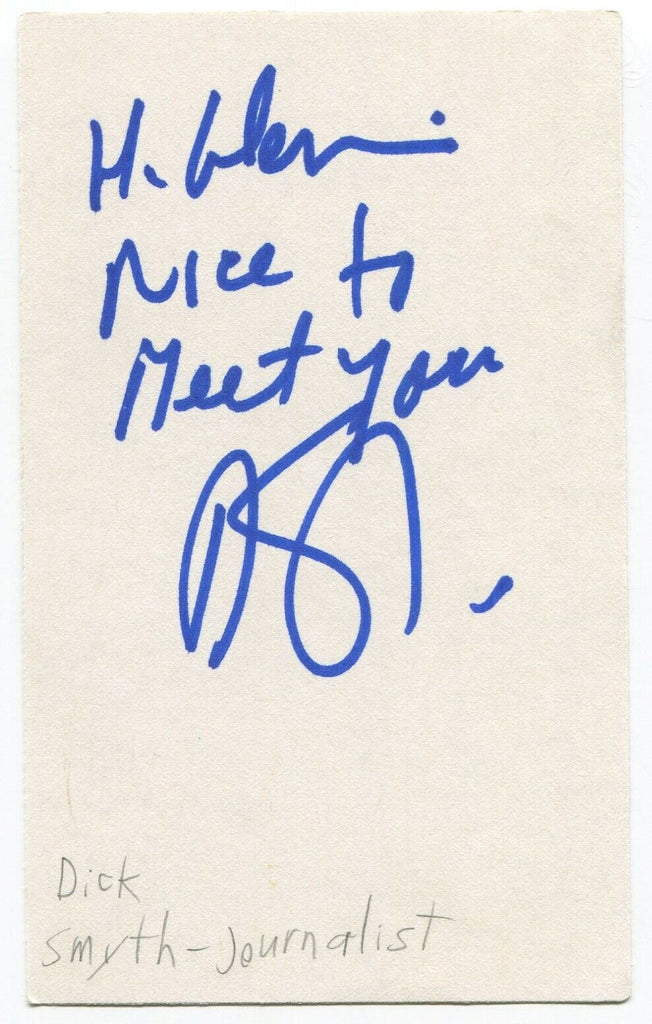 Hi Glenn
Nice to
Meet you
Dick
Smyth - Journalist